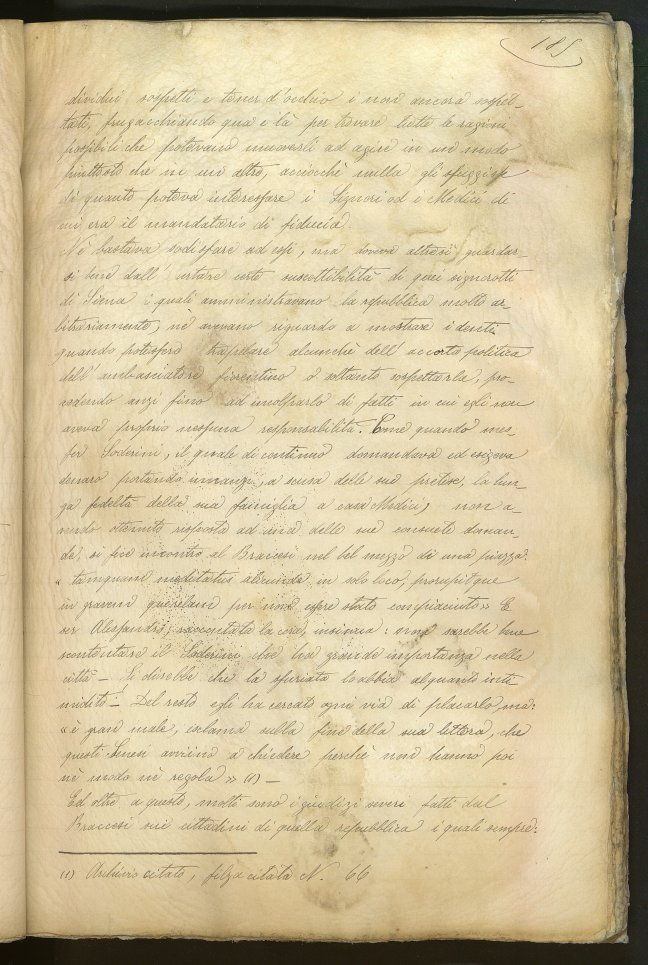 185
dividui sospetti e tener d'occhio i non ancora sospet-
tati, frugacchiando qua e là per trovare tutte le ragioni
possibili che potevano muoverli ad agire in un modo
piuttosto che in un altro, acciocchè nulla gli sfuggisse
di quanto poteva interessare i Signori od i Medici di
cui era il mandatario di fiducia.
Nè bastava sodisfare ad essi, ma doveva altresì guardar-
si bene dall' urtare certe suscettibilità di quei signorotti
di Siena i quali amministravano la repubblica molto ar-
bitrariamente, nè avevano riguardo a mostrare i denti
quando potessero trapelare alcunchè dell' accorta politica
dell' ambasciatore fiorentino o soltanto sospettarla, pro-
cedendo anzi fino ad incolparlo di fatti in cui egli non
aveva proprio nessuna responsabilità. Come quando mes-
ser Soderini, il quale di continuo domandava ed esigeva
denaro portando innanzi, a scusa delle sue pretese, la lun-
ga fedeltà della sua famiglia a casa Medici, non a-
vendo ottenuto risposta ad una delle sue consuete doman-
de, si fece incontro al Braccesi nel bel mezzo di una piazza:
« tamquam meditatus in solo loco, prorupitque
in gravem querelam per non essere stato compiaciuto» E
ser Alessandro, raccontata la cosa, insinua: omai sarebbe bene
scontentare il Soderini che ha grande importanza nella
città - Si direbbe che la sfuriata lo abbia alquanto inti
midito! - Del resto egli ha cercato ogni via di placarlo, ma:
«è gran male, esclama sulla fine della sua lettera, che
questi Senesi avvino a chiedere perchè non hanno poi
nè modo nè regola » (1) -
Ed oltre a questo, molti sono i giudizi severi fatti dal
Braccesi sui cittadini di quella repubblica i quali sempre:
(1) Archivio citato, filza citata N. 66